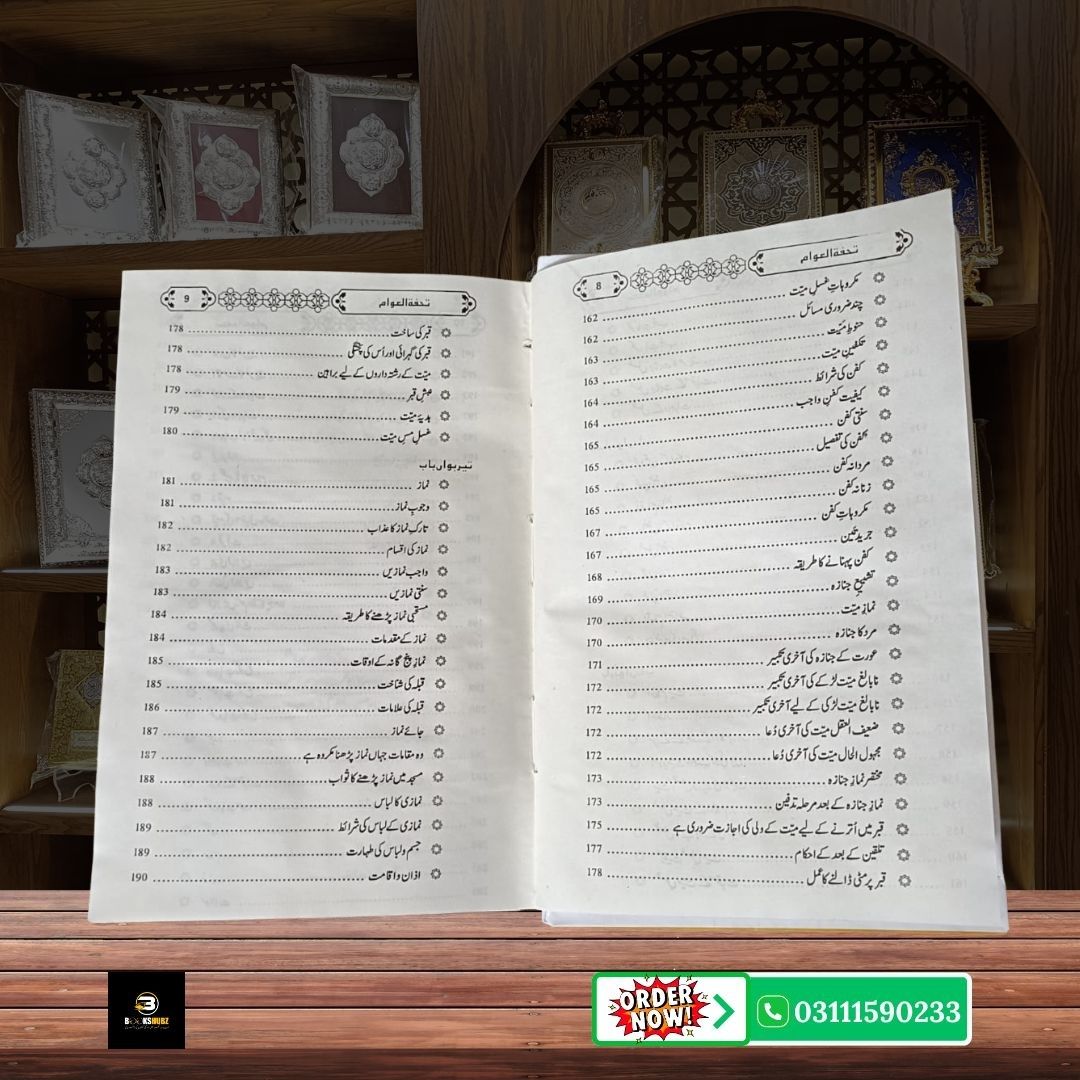 تحفۃ العوام 8
مکروہاتِ غسل میّت 162
چند ضروری مسائل 162
حنوطِ میّت 163
تکفین میّت 163
کفن کی شرائط 164
کیفیت کفنِ واجب 164
سنتی کفن 165
کفن کی تفصیل 165
مردانہ کفن 165
زنانہ کفن 165
مکروہاتِ کفن 167
جریدتین 167
کفن پہنانے کا طریقہ 168
تشییع جنازہ 169
نمازِ میّت 170
مرد کا جنازہ 170
عورت کے جنازہ کی آخری تکبیر 171
نابالغ میّت لڑکے کی آخری تکبیر 172
نابالغ میّت لڑکی کے لیے آخری تکبیر 172
ضعیف العقل میّت کی آخری دُعا 172
مجہول الحال میّت کی آخری دُعا 172
مختصر نمازِ جنازہ 173
نمازِ جنازہ کے بعد مرحلہ تدفین 173
قبر میں اُترنے کے لیے میّت کے ولی کی اجازت ضروری ہے 175
تلقین کے بعد کے احکام 177
قبر پر مٹی ڈالنے کا عمل 178
تحفۃ العوام 9
قبر کی ساخت 178
قبر کی گہرائی اور اُس کی پختگی 178
میّت کے رشتہ داروں کے لیے براہین 178
نبشِ قبر 179
ہدیۂ میّت 179
غسلِ مسِ میّت 180
تیرہواں باب
نماز 181
وجوبِ نماز 181
تارکِ نماز کا عذاب 182
نماز کی اقسام 182
واجب نمازیں 183
سنتی نمازیں 183
مستحبی نماز پڑھنے کا طریقہ 184
نماز کے مقدمات 184
نمازِ پنج گانہ کے اوقات 185
قبلہ کی شناخت 185
قبلہ کی علامات 186
جائے نماز 187
وہ مقامات جہاں نماز پڑھنا مکروہ ہے 187
مسجد میں نماز پڑھنے کا ثواب 188
نمازی کا لباس 188
نمازی کے لباس کی شرائط 189
جسم و لباس کی طہارت 189
اذان و اقامت 190
B
BOOKSHUBZ
ORDER
NOW!
03111590233